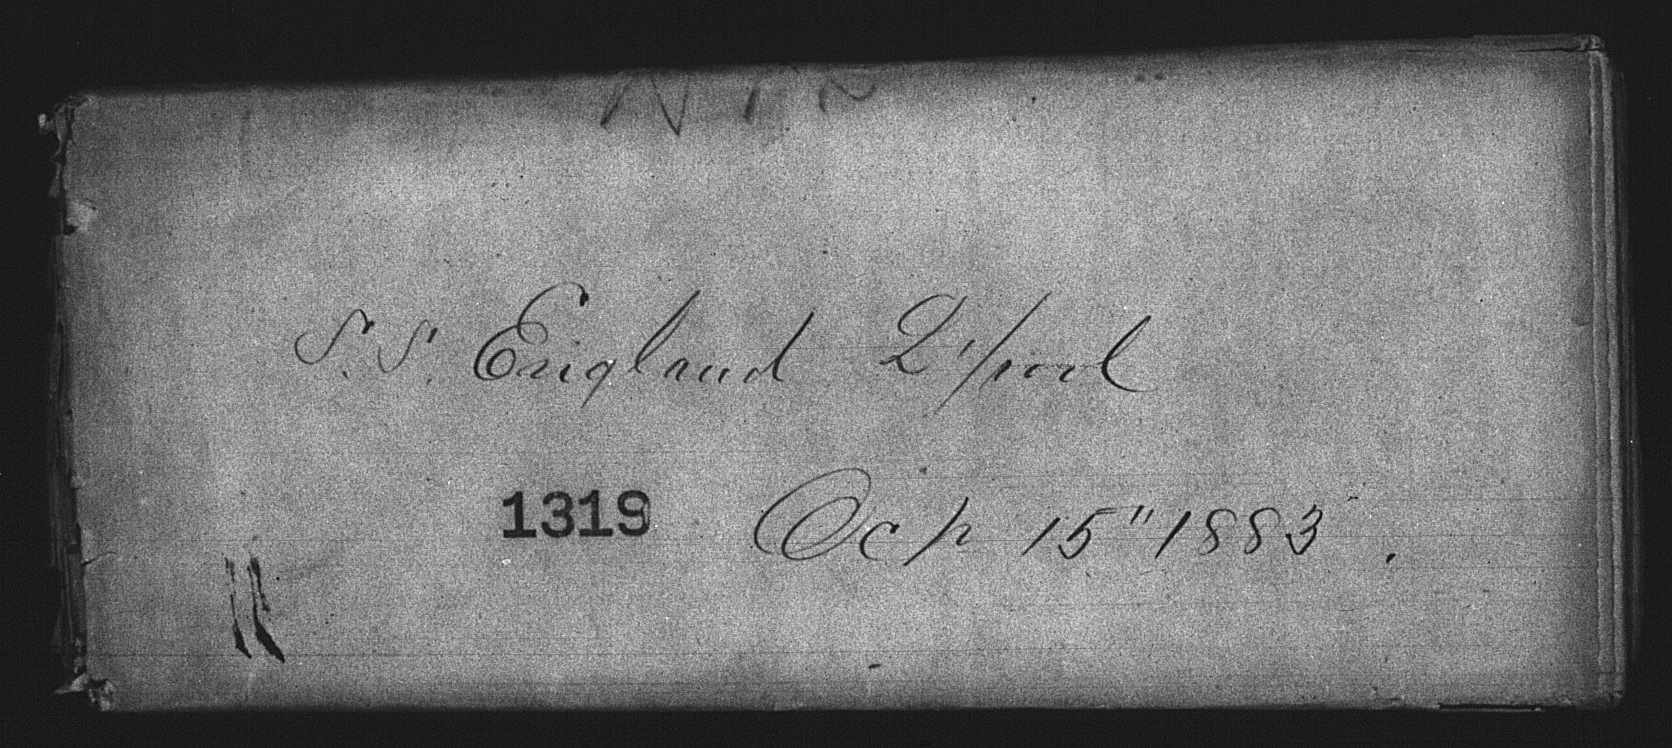 S. S. England L'pool
1319 Oct 15" 1883.
11